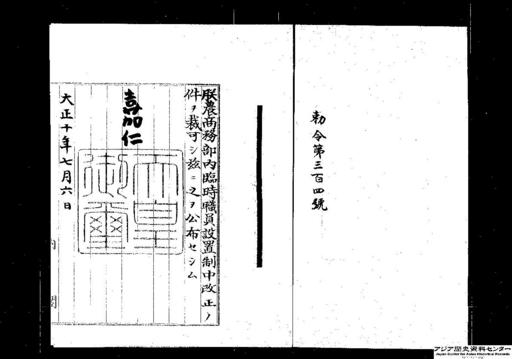 勅令第三百四號
朕農商務部內臨時職員設置制中改正ノ
件ヲ裁可シ玆ニ之ヲ公布セシム
嘉仁
天皇御璽
大正十年七月六日
內閣
アジア歴史資料センター
Japan Center for Asian Historical Records